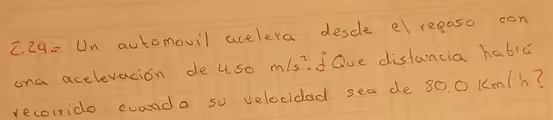 2.24.- Un automovil acelera desde el reposo con
una aceleración de 4.50 m/s². ¿Que distancia habrá
recorrido cuando su velocidad sea de 80.0 Km/h?